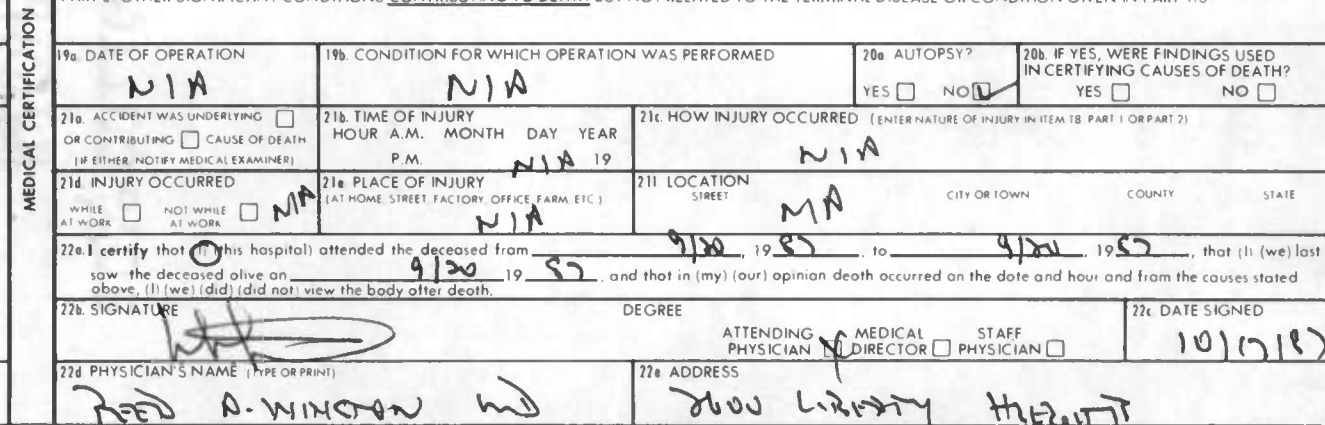 PART 2. OTHER SIGNIFICANT CONDITIONS CONTRIBUTING TO DEATH BUT NOT RELATED TO THE TERMINAL DISEASE OR CONDITION GIVEN IN PART 1
MEDICAL CERTIFICATION
19a DATE OF OPERATION
N/A
19b. CONDITION FOR WHICH OPERATION WAS PERFORMED
N/A
20a AUTOPSY?
YES NO
20b. IF YES, WERE FINDINGS USED
IN CERTIFYING CAUSES OF DEATH?
YES NO
21a. ACCIDENT WAS UNDERLYING
OR CONTRIBUTING CAUSE OF DEATH
(IF EITHER, NOTIFY MEDICAL EXAMINER)
21b. TIME OF INJURY
HOUR A.M. MONTH DAY YEAR
P.M. N/A 19
21c. HOW INJURY OCCURRED (ENTER NATURE OF INJURY IN ITEM 18 PART 1 OR PART 2)
N/A
21d INJURY OCCURRED
WHILE AT WORK NOT WHILE AT WORK N/A
21e PLACE OF INJURY
(AT HOME STREET, FACTORY, OFFICE, FARM, ETC.)
N/A
21f LOCATION
STREET CITY OR TOWN COUNTY STATE
N/A
22a. I certify that (I) (this hospital) attended the deceased from 9/20, 1987, to 9/20, 1987, that (I) (we) last
saw the deceased alive on 9/20 1987, and that in (my) (our) opinion death occurred on the date and hour and from the causes stated
above, (I) (we) (did) (did not) view the body after death.
22b. SIGNATURE
DEGREE
ATTENDING PHYSICIAN MEDICAL DIRECTOR STAFF PHYSICIAN
22c. DATE SIGNED
22d PHYSICIAN'S NAME (TYPE OR PRINT)
REED A. WINSTON MD
22e ADDRESS
LIBERTY